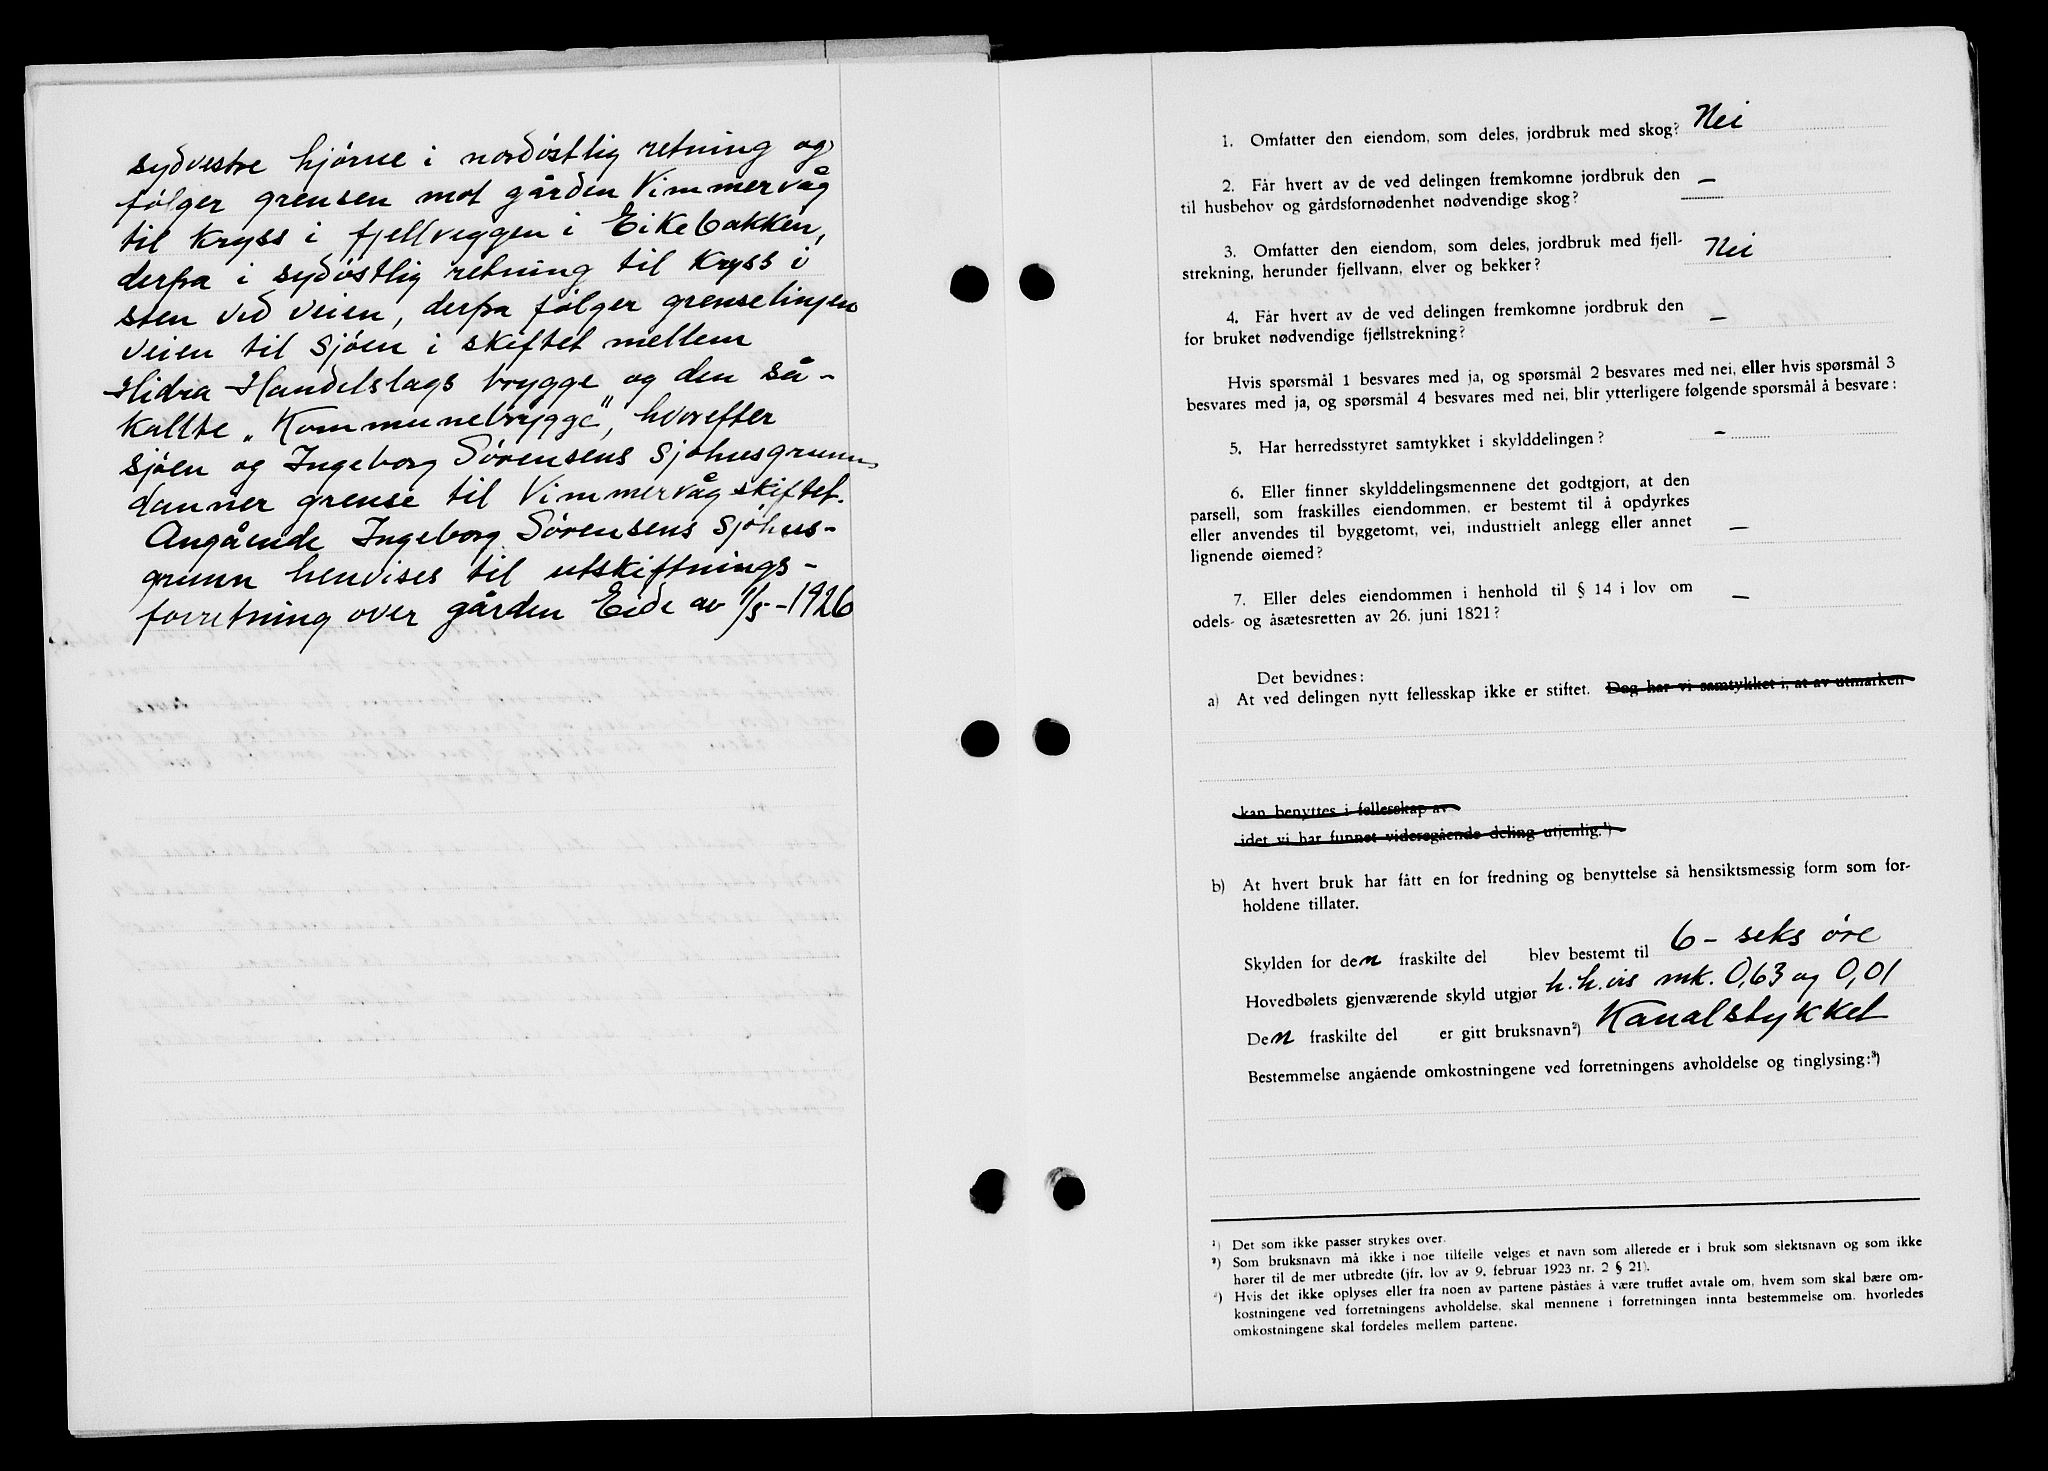 sydvestre hjørne i nordøstlig retning og
følger grensen mot gården Vimmervåg
til kryss i fjellveggen i Eikebakken,
derfra i sydøstlig retning til kryss i
sten ved veien, derfra følger grenselinjen
veien til sjøen i skiftet mellem
Hidra Handelslags brygge og den så-
kallte „Kommunebrygge", hvorefter
sjøen og Ingeborg Sørensens sjøhusgrunn
danner grense til Vimmervågskiftet.
Angående Ingeborg Sørensens sjøhus-
grunn henvises til utskiftnings-
forretning over gården Eide av 1/5-1926
1. Omfatter den eiendom, som deles, jordbruk med skog? Nei
2. Får hvert av de ved delingen fremkomne jordbruk den
til husbehov og gårdsfornødenhet nødvendige skog? —
3. Omfatter den eiendom, som deles, jordbruk med fjell-
strekning, herunder fjellvann, elver og bekker? Nei
4. Får hvert av de ved delingen fremkomne jordbruk den
for bruket nødvendige fjellstrekning? —
Hvis spørsmål 1 besvares med ja, og spørsmål 2 besvares med nei, eller hvis spørsmål 3
besvares med ja, og spørsmål 4 besvares med nei, blir ytterligere følgende spørsmål å besvare:
5. Har herredsstyret samtykket i skylddelingen? —
6. Eller finner skylddelingsmennene det godtgjort, at den
parsell, som fraskilles eiendommen, er bestemt til å opdyrkes
eller anvendes til byggetomt, vei, industrielt anlegg eller annet
lignende øiemed? —
7. Eller deles eiendommen i henhold til § 14 i lov om
odels- og åsætesretten av 26. juni 1821? —
Det bevidnes:
a) At ved delingen nytt fellesskap ikke er stiftet. Dog har vi samtykket i, at av utmarken
kan benyttes i fellesskap av
idet vi har funnet videregående deling utjenlig.¹)
b) At hvert bruk har fått en for fredning og benyttelse så hensiktsmessig form som for-
holdene tillater.
Skylden for den fraskilte del blev bestemt til 6 - seks øre
Hovedbølets gjenværende skyld utgjør h.h.vis mk. 0,63 og 0,01
Den fraskilte del er gitt bruksnavn²) Kanalstykket
Bestemmelse angående omkostningene ved forretningens avholdelse og tinglysing:³)
¹) Det som ikke passer strykes over.
²) Som bruksnavn må ikke i noe tilfelle velges et navn som allerede er i bruk som slektsnavn og som ikke
hører til de mer utbredte (jfr. lov av 9. februar 1923 nr. 2 § 21).
³) Hvis det ikke oplyses eller fra noen av partene påståes å være truffet avtale om, hvem som skal bære om-
kostningene ved forretningens avholdelse, skal mennene i forretningen innta bestemmelse om, hvorledes
omkostningene skal fordeles mellem partene.